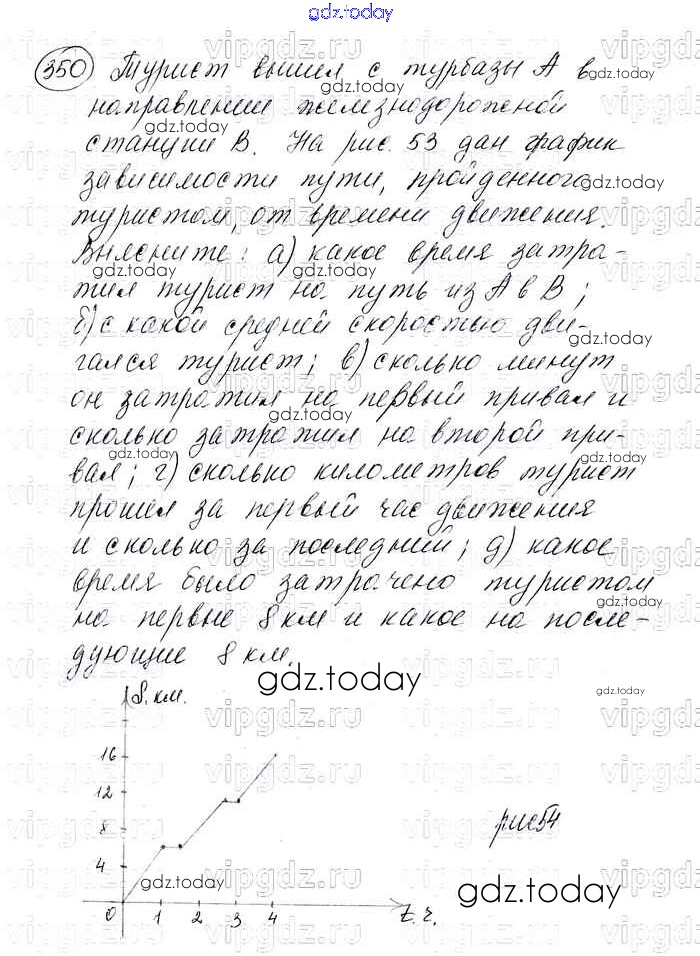 gdz.today
350 Турист вышел с турбазы А в
gdz.today
направлении железнодорожной
gdz.today
станции В. На рис. 53 дан график
зависимости пути, пройденного
gdz.today
туристом, от времени движения.
Выясните: а) какое время затра-
gdz.today gdz.today
тил турист на путь из А в В;
б) с какой средней скоростью дви-
gdz.today
гался турист; в) сколько минут
он затратил на первый привал и
gdz.today
сколько затратил на второй при-
вал; г) сколько километров турист
gdz.today
прошёл за первый час движения
и сколько за последний; д) какое
gdz.today
время было затрачено туристом
gdz.today
на первые 8 км и какое на после-
дующие 8 км.
gdz.today
S, км.
gdz.today
16
12
8
рис 54
4
gdz.today gdz.today
0 1 2 3 4 t. г.
vipgdz.ru